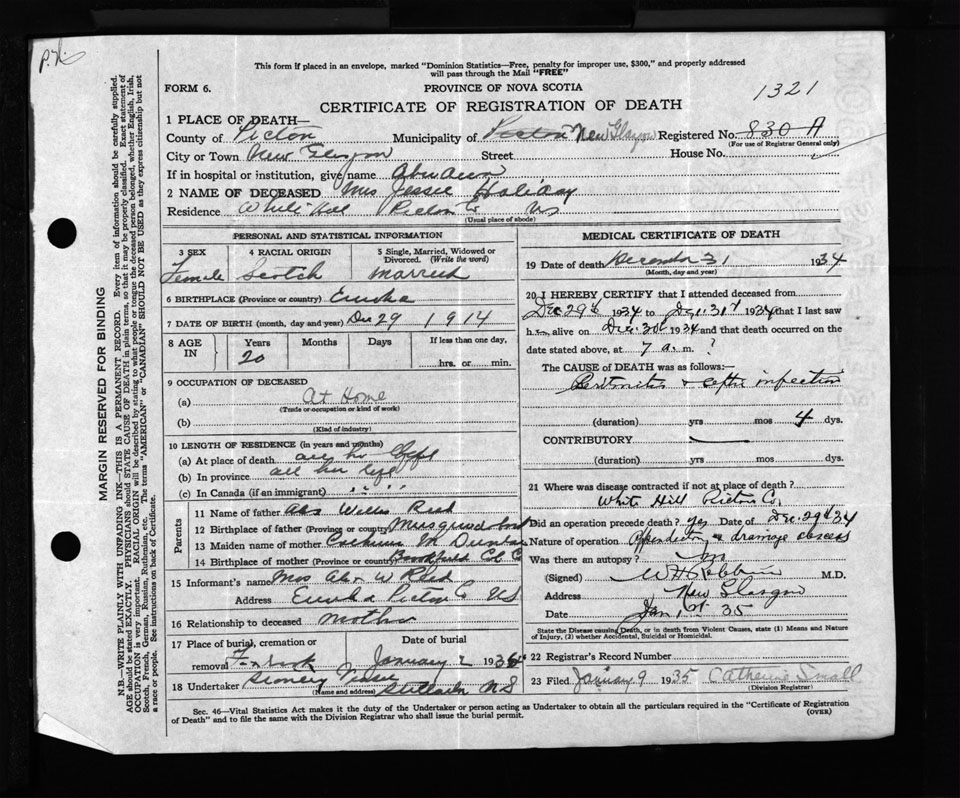 This form if placed in an envelope, marked "Dominion Statistics—Free, penalty for improper use, $300," and properly addressed
will pass through the Mail "FREE"
FORM 6.
PROVINCE OF NOVA SCOTIA
1321
CERTIFICATE OF REGISTRATION OF DEATH
1 PLACE OF DEATH—
County of Pictou Municipality of Pictou New Glasgow Registered No. 830 A
(For use of Registrar General only)
City or Town New Glasgow Street House No.
If in hospital or institution, give name Aberdeen
2 NAME OF DECEASED Mrs Jessie Haliday
Residence White Hill Pictou Co NS
(Usual place of abode)
PERSONAL AND STATISTICAL INFORMATION
3 SEX 4 RACIAL ORIGIN 5 Single, Married, Widowed or Divorced. (Write the word)
Female Scotch Married
6 BIRTHPLACE (Province or country) Eureka
7 DATE OF BIRTH (month, day and year) Dec 29 1914
8 AGE IN Years Months Days If less than one day,
20
hrs. or min.
9 OCCUPATION OF DECEASED
(a) At Home
(Trade or occupation or kind of work)
(b)
(Kind of industry)
10 LENGTH OF RESIDENCE (in years and months)
(a) At place of death all her life
(b) In province all her life
(c) In Canada (if an immigrant) " " "
Parents
11 Name of father Alex Willis Reid
12 Birthplace of father (Province or country) Musquodoboit
13 Maiden name of mother M Dunbar
14 Birthplace of mother (Province or country) Brookfield Col Co
15 Informant's name Mrs Alex W Reid
Address Eureka Pictou Co NS
16 Relationship to deceased Mother
17 Place of burial, cremation or Date of burial
removal January 2 1935
18 Undertaker Stellarton NS
(Name and address)
MEDICAL CERTIFICATE OF DEATH
19 Date of death December 31 1934
(Month, day and year)
20 I HEREBY CERTIFY that I attended deceased from
Dec 29th 1934 to Dec. 31st 1934 that I last saw
her alive on Dec. 30th 1934 and that death occurred on the
date stated above, at 7 a. m. ?
The CAUSE of DEATH was as follows:—
Peritonitis & septic infection
(duration) yrs mos 4 dys.
CONTRIBUTORY
(duration) yrs. mos. dys.
21 Where was disease contracted if not at place of death?
White Hill Pictou Co.
Did an operation precede death? yes Date of Dec. 29th 34
Nature of operation Appendectomy & drainage abscess
Was there an autopsy? no
(Signed) M.D.
Address New Glasgow
Date Jan 1st 35
State the Disease causing Death, or in death from Violent Causes, state (1) Means and Nature
of Injury, (2) whether Accidental, Suicidal or Homicidal.
22 Registrar's Record Number
23 Filed January 9 1935 Catherine Small
(Division Registrar)
Sec. 46—Vital Statistics Act makes it the duty of the Undertaker or person acting as Undertaker to obtain all the particulars required in the "Certificate of Registration
of Death" and to file the same with the Division Registrar who shall issue the burial permit.
(OVER)
MARGIN RESERVED FOR BINDING
N.B.—WRITE PLAINLY WITH UNFADING INK—THIS IS A PERMANENT RECORD. Every item of information should be carefully supplied.
AGE should be stated EXACTLY. PHYSICIANS should STATE CAUSE OF DEATH in plain terms, so that it may be properly classified. Exact statement of
OCCUPATION is very important. RACIAL ORIGIN will be described by stating to what people or tongue the deceased person belonged, whether English, Irish,
Scotch, French, German, Russian, Ruthenian, etc. The terms "AMERICAN" or "CANADIAN" SHOULD NOT BE USED as they express citizenship but not
a race or people. See instructions on back of Certificate.